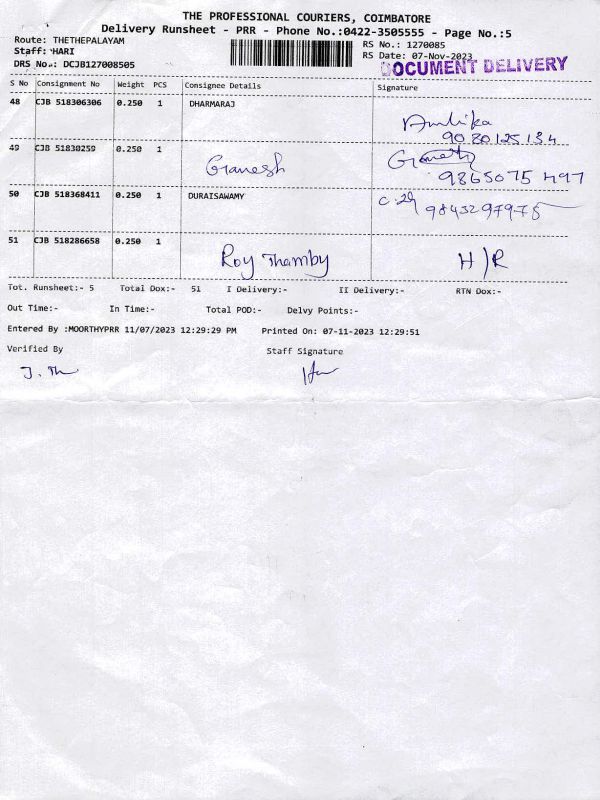 THE PROFESSIONAL COURIERS, COIMBATORE
Delivery Runsheet - PRR - Phone No.:0422-3505555 - Page No.:5
Route: THETHEPALAYAM
RS No.: 1270085
Staff: HARI
RS Date: 07-Nov-2023
DRS No.: DCJB127008505
DOCUMENT DELIVERY
S No Consignment No Weight PCS Consignee Details Signature
48 CJB 518306306 0.250 1 DHARMARAJ
Ambika
9080125134
49 CJB 51830259 0.250 1 Ganesh
9865075497
50 CJB 518368411 0.250 1 DURAISAWAMY
9843297975
51 CJB 518286658 0.250 1 Roy Thamby H/R
Tot. Runsheet:- 5 Total Dox:- 51 I Delivery:- II Delivery:- RTN Dox:-
Out Time:- In Time:- Total POD:- Delvy Points:-
Entered By :MOORTHYPRR 11/07/2023 12:29:29 PM Printed On: 07-11-2023 12:29:51
Verified By Staff Signature